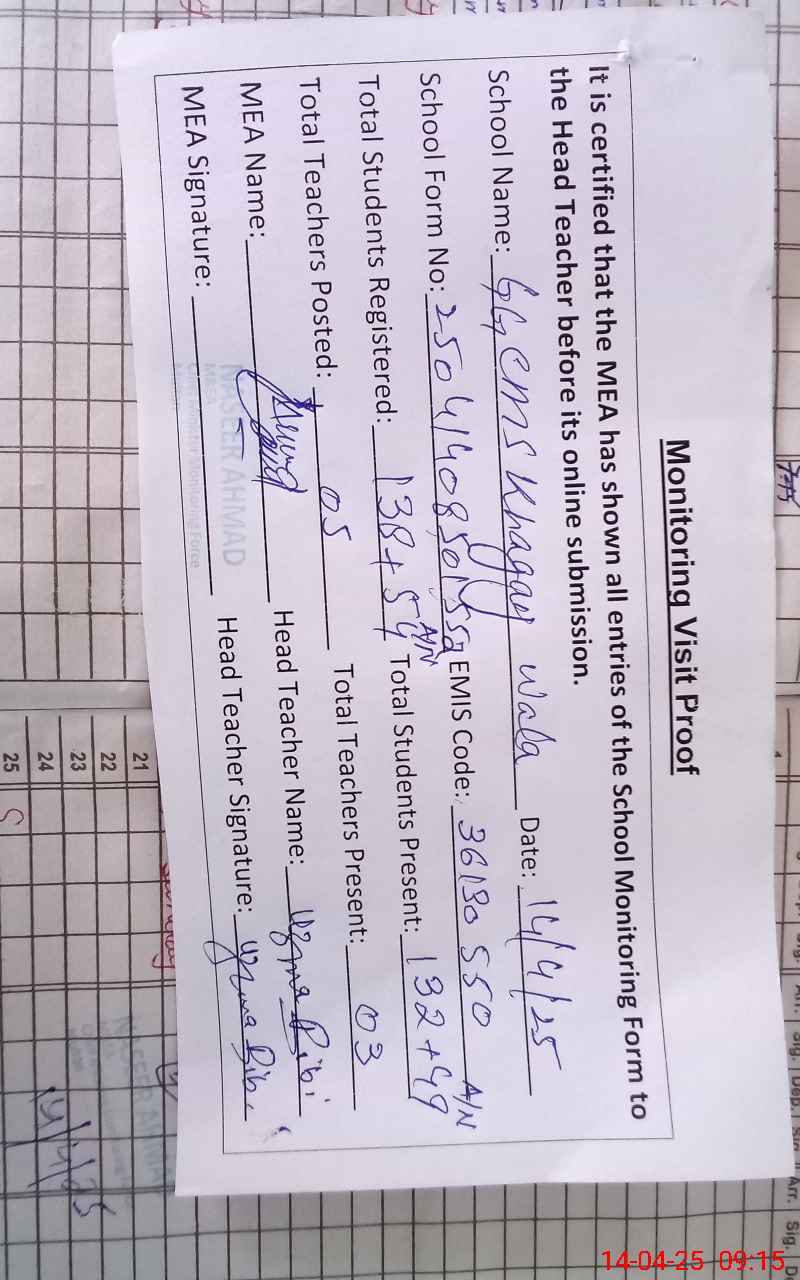 Monitoring Visit Proof
It is certified that the MEA has shown all entries of the School Monitoring Form to
the Head Teacher before its online submission.
School Name: GGCMS Khagay wala Date: 14/4/25
School Form No: EMIS Code: 36130550
Total Students Registered: 138+54 A/N Total Students Present: 132+49 A/N
Total Teachers Posted: 05 Total Teachers Present: 03
MEA Name: Head Teacher Name: Uzma Bibi
MEA Signature: Head Teacher Signature: Uzma Bibi
NASEER AHMAD
Chief Minister Monitoring Force
21
22
23
24
25
14/4/25
14-04-25 09:15